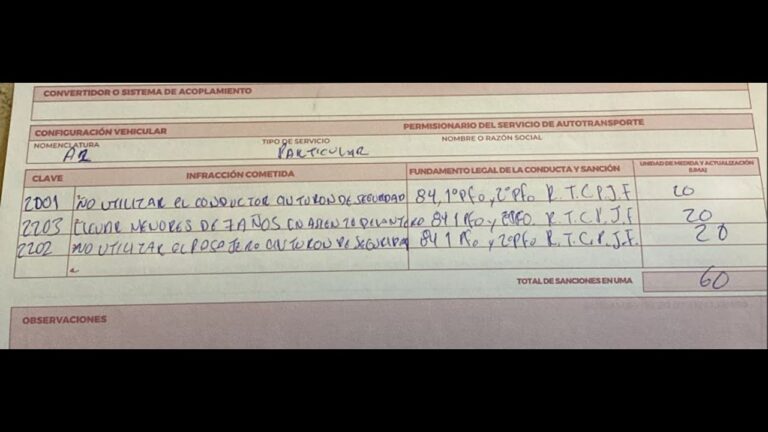 CONVERTIDOR O SISTEMA DE ACOPLAMIENTO
CONFIGURACIÓN VEHICULAR
PERMISIONARIO DEL SERVICIO DE AUTOTRANSPORTE
NOMENCLATURA
TIPO DE SERVICIO
NOMBRE O RAZÓN SOCIAL
A2
PARTICULAR
CLAVE INFRACCIÓN COMETIDA FUNDAMENTO LEGAL DE LA CONDUCTA Y SANCIÓN UNIDAD DE MEDIDA Y ACTUALIZACIÓN (UMA)
2001 NO UTILIZAR EL CONDUCTOR CINTURON DE SEGURIDAD 84, 1º Pfo, 2º Pfo. R.T.C.P.J.F 20
2203 MENORES DE 7 AÑOS EN ASIENTO DELANTERO 84 1 Pfo y 2º Pfo. R.T.C.P.J.F 20
2202 NO UTILIZAR EL PASAJERO CINTURON DE SEGURIDAD 84 1 Pfo y 2º Pfo R.T.C.P.J.F. 20
TOTAL DE SANCIONES EN UMA 60
OBSERVACIONES